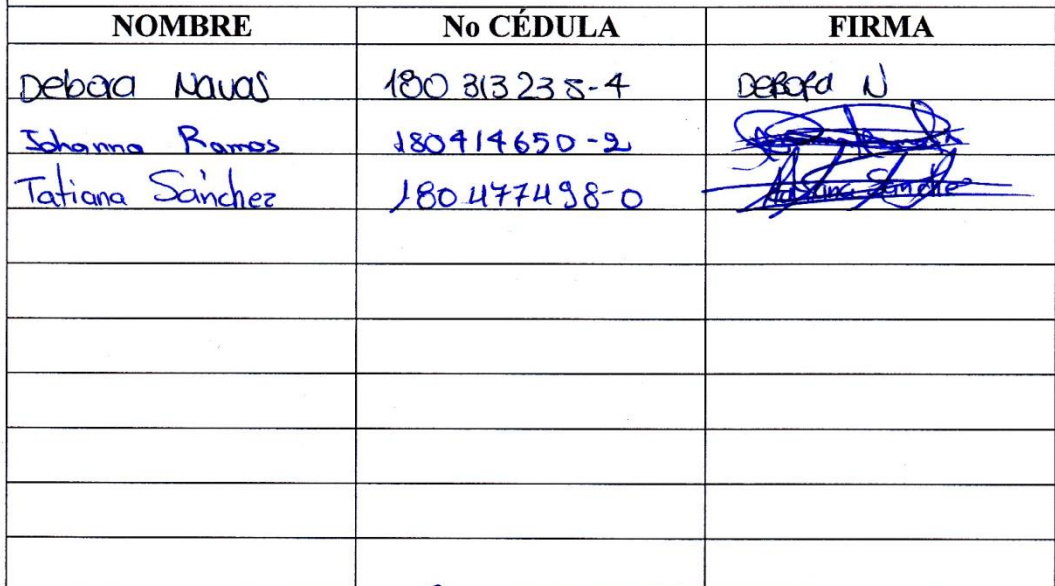 NOMBRE No CÉDULA FIRMA
Debora Navas 180313235-4 DEBORA N
Johanna Ramos 180414650-2
Tatiana Sánchez 180477498-0 Tatiana Sánchez